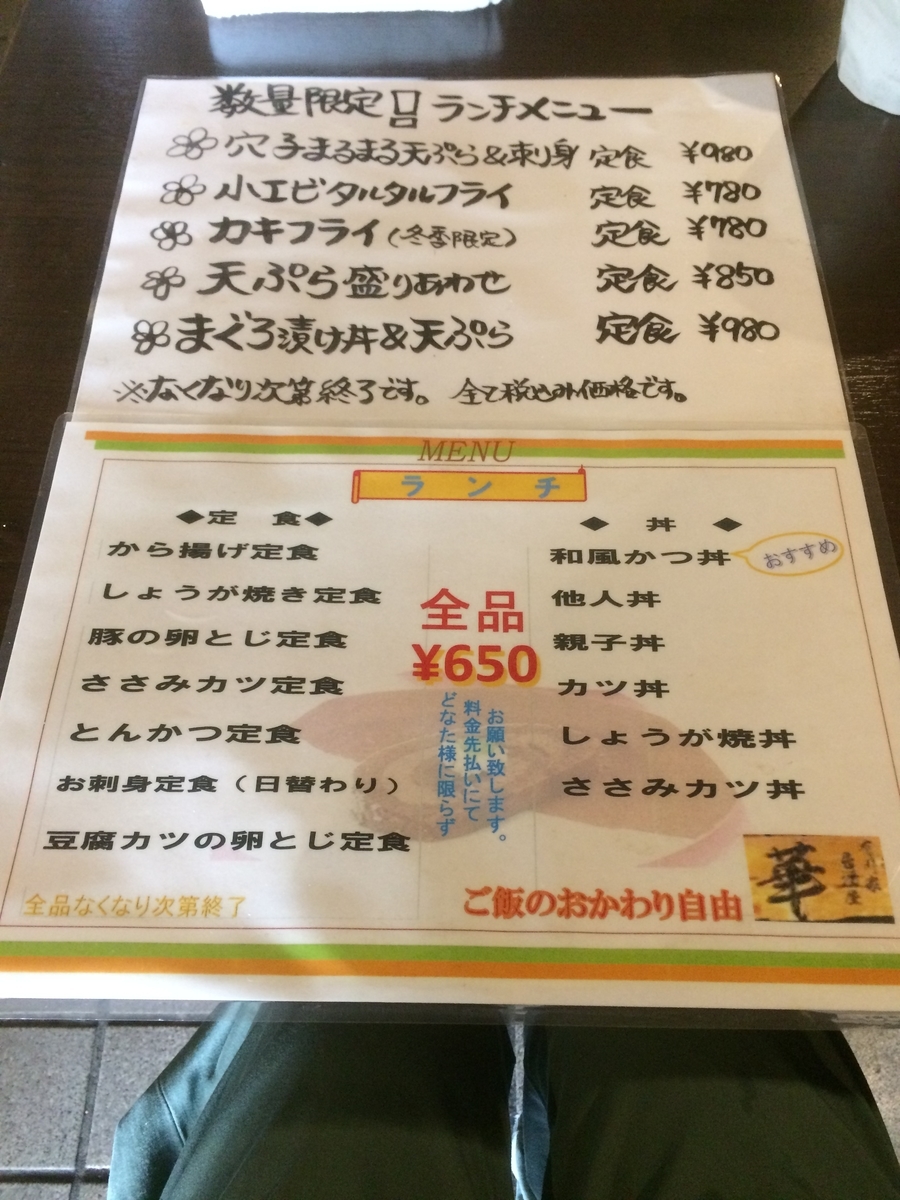 数量限定!! ランチメニュー
穴子まるまる天ぷら&刺身 定食 ¥980
小エビタルタルフライ 定食 ¥780
カキフライ(冬季限定) 定食 ¥780
天ぷら盛りあわせ 定食 ¥850
まぐろ漬け丼&天ぷら 定食 ¥980
※なくなり次第終了です。 全て税込み価格です。
MENU
ランチ
◆定 食◆
から揚げ定食
しょうが焼き定食
豚の卵とじ定食
ささみカツ定食
とんかつ定食
お刺身定食(日替わり)
豆腐カツの卵とじ定食
全品
¥650
どなた様に限らず
料金先払いにて
お願い致します。
◆ 丼 ◆
和風かつ丼
おすすめ
他人丼
親子丼
カツ丼
しょうが焼丼
ささみカツ丼
全品なくなり次第終了
ご飯のおかわり自由
華